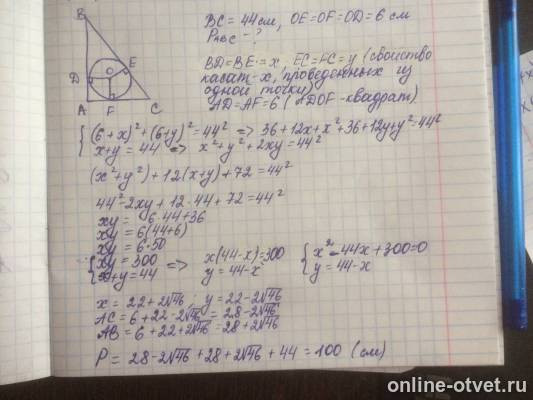 BC = 44 см, OE=OF=OD=6 см
P_ABC - ?
BD=BE=x, EC=FC=y (свойство
касат-х, проведенных из
одной точки)
AD=AF=6 (ADOF-квадрат).
B
E
O
D
A F C
{(6+x)²+(6+y)²=44² => 36+12x+x²+36+12y+y²=44²
x+y=44 => x²+y²+2xy=44²
(x²+y²)+12(x+y)+72=44²
44²-2xy+12·44+72=44²
xy = 6·44+36
xy = 6(44+6)
xy = 6·50
{xy = 300 => x(44-x)=300 {x²-44x+300=0
x+y=44 y=44-x y=44-x
x = 22+2√46, y=22-2√46
AC = 6+22-2√46 = 28-2√46
AB = 6+22+2√46=28+2√46
P = 28-2√46+28+2√46+44=100 (см)
online-otvet.ru